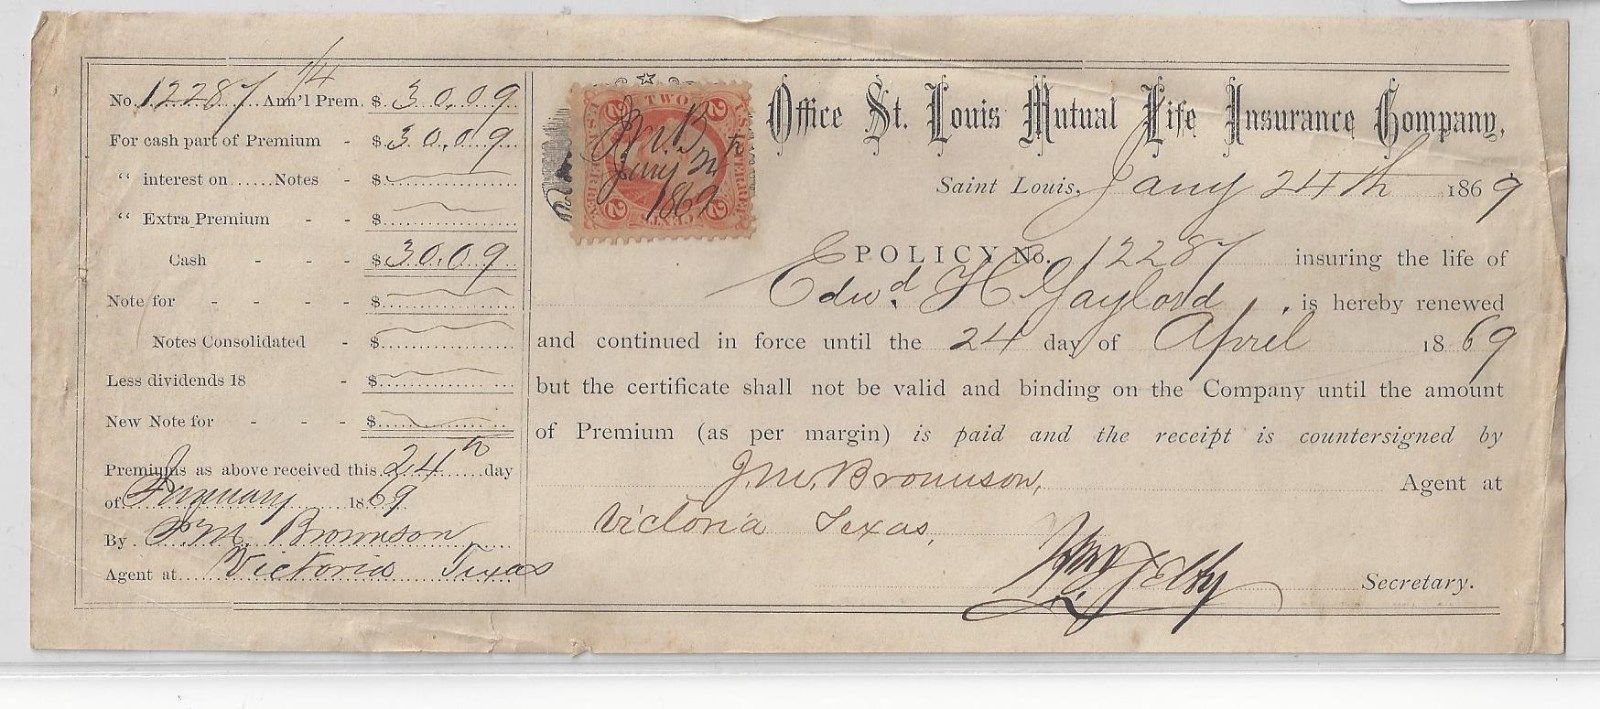 No. 12287 1/4 Ann'l Prem. $ 30.09
For cash part of Premium - $ 30.09
“ interest on ...... Notes - $
“ Extra Premium - - $
Cash - - - $ 30.09
Note for - - - - $
Notes Consolidated - $
Less dividends 18 - $
New Note for - - - $
Premiums as above received this 24th day
of January 1869
By J. M. Brownson
Agent at Victoria Texas
U.S. INTER. REV.
TWO
2 2
J. M. B.
Jany 24th
1869
2 2
CENTS
Office St. Louis Mutual Life Insurance Company,
Saint Louis, Jany 24th 1869
POLICY No. 12287 insuring the life of
Edwd. H Gaylord, is hereby renewed
and continued in force until the 24 day of April 1869
but the certificate shall not be valid and binding on the Company until the amount
of Premium (as per margin) is paid and the receipt is countersigned by
J. M. Brownson, Agent at
Victoria Texas,
Wm Selby Secretary.